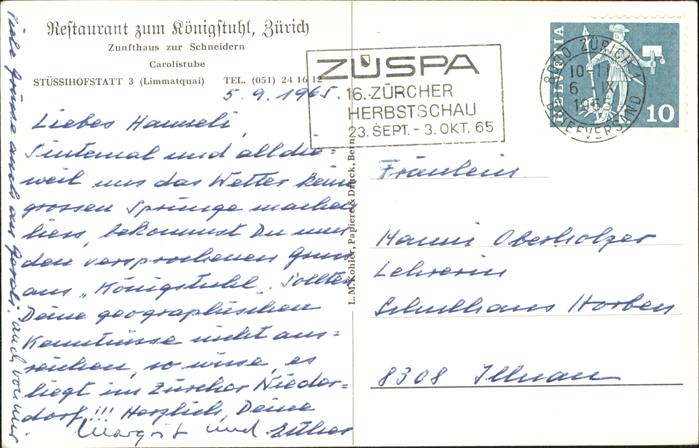 Restaurant zum Königstuhl, Zürich
Zunfthaus zur Schneidern
Carolistube
STÜSSIHOFSTATT 3 (Limmatquai) TEL. (051) 24 16 12
5.9.1965.
Liebes Hanneli,
Sintemal und alldie=
weil uns das Wetter keine
grossen Sprünge machen
liess, bekommst Du nur
den versprochenen Gruss
aus „Königstuhl". Sollten
Deine geographischen
Kenntnisse nicht aus=
reichen, so wisse, es
liegt im Zürcher Nieder=
dorf!!! Herzlich, Deine
Margrit und Esther
Viele Grüsse auch an
auch von mir
L. M. Kohler, Papier & Druck, Bern
ZÜSPA
16. ZÜRCHER
HERBSTSCHAU
23. SEPT. - 3. OKT. 65
8000 ZÜRICH 1
6 IX
1965
BRIEFVERSAND
HELVETIA
10
Fräulein
Hanni Oberholzer
Lehrerin
Schulhaus Horben
8308 Illnau